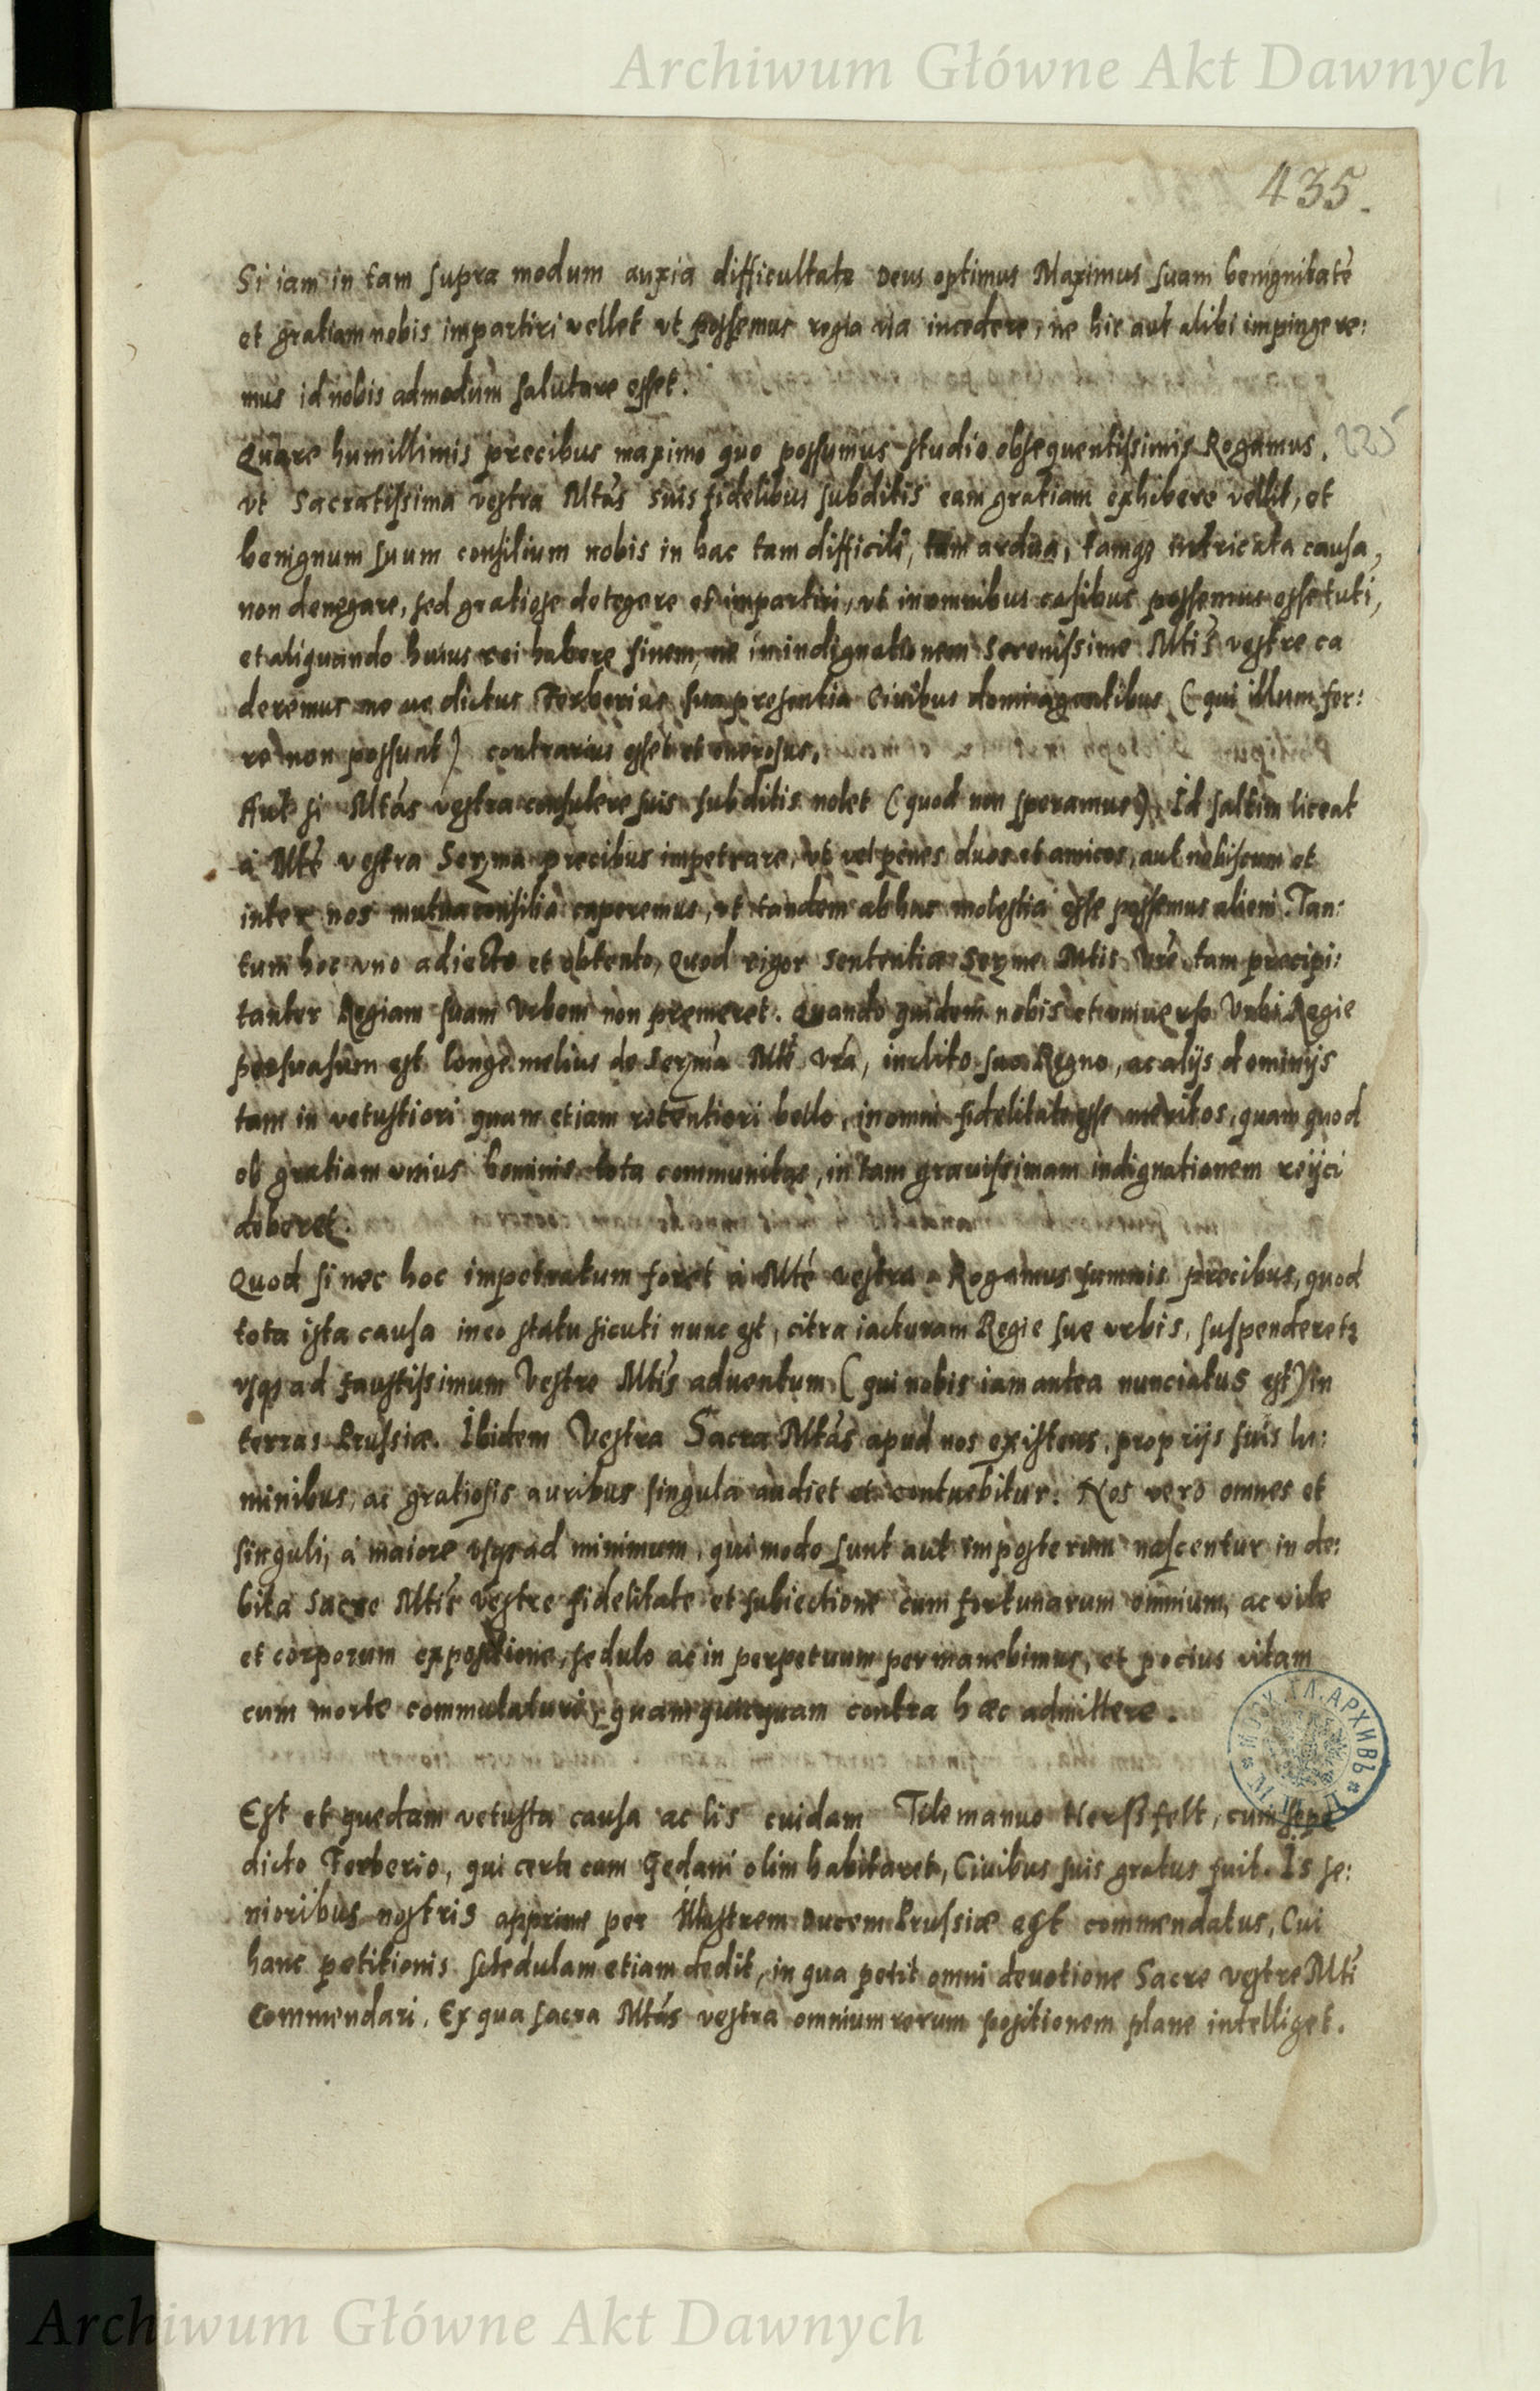 Archiwum Główne Akt Dawnych
435.
Si iam in tam supra modum anxia difficultate Deus optimus Maximus suam benignitatē
et gratiam nobis impartiri vellet vt possemus regia via incedere, ne hic aut alibi impingere:
mus id nobis admodum salutare esset.
Quare humillimis precibus maximo quo possumus studio obsequentissimis Rogamus.
225
vt Sacratissima vestra Mtās suis fidelibus subditis eam gratiam exhibere vellit, et
benignum suum consilium nobis in hac tam difficili, tam ardua, tamqȝ intricata causa,
non denegare, sed gratiose detegere et impartiri, vt in omnibus casibus possemus esse tuti,
et aliquando huius rei habere finem, ne in indignationem Serenissime Mtīs vestre ca
deremus ne ue dictus Ferberius sua presentia Ciuibus (qui illum fer:
re non possunt) contrarius esset et onerosus.
Aut si Mtās vestra consulere suis subditis nolet (quod non speramus), Id saltim liceat
à Mtē vestra Serma precibus impetrare, vt vel penes duos et amicos, aut nobiscum et
inter nos mutua consilia caperemus, vt tandem ab hac molestia esse possemus alieni. Tan:
tum hoc vno adiecto et obtento, Quod rigor sententiæ Serme Mtis vrē tam precipi:
tanter Regiam suam Vrbem non premeret. Quando quidem nobis et vniuerso Vrbi Regie
persuasum est longe melius de Sermā Mtē vrā, inclito suo Regno, ac alijs dominijs
tam in vetustiori quam etiam recentiori bello, in omni fidelitate esse meritos, quam quod
ob gratiam vnius hominis tota communitas, in tam grauissimam indignationem reijci
deberet.
Quod si nec hoc impetratum foret à Mtē vestra Rogamus summis precibus, quod
tota ista causa in eo statu sicuti nunc est, citra iacturam Regie sue vrbis, suspenderetȝ
vsqȝ ad faustissimum Vestre Mtīs aduentum (qui nobis iam antea nunciatus est) in
terras Prussiæ. Ibidem Vestra Sacra Mtās apud nos existens, proprijs suis lu:
minibus, ac gratiosis auribus singula audiet et contuebitur. Nos vero omnes et
singuli, à maiore vsqȝ ad minimum, qui modo sunt aut imposterum nascentur in de:
bita Sacre Mtīs vestre fidelitate et subiectione cum fortunarum omnium, ac vite
et corporum expositione, sedulo ac in perpetuum permanebimus, et pocius vitam
cum morte commutaturi, quam quicquam contra hæc admittere.
Est et quedam vetusta causa ac lis cuidam Tilemanno Herßfelt, cum sepe
dicto Ferberio, qui certe cum Gedani olim habitaret, Ciuibus suis gratus fuit. Is se:
nioribus nostris apprime per Illustrem Ducem Prussiæ est commendatus, Cui
hanc petitionis schedulam etiam dedit, in qua petit omni deuotione Sacre vestre Mtī
Commendari. Ex qua sacra Mtās vestra omnium rerum positionem plane intelliget.
Archiwum Główne Akt Dawnych